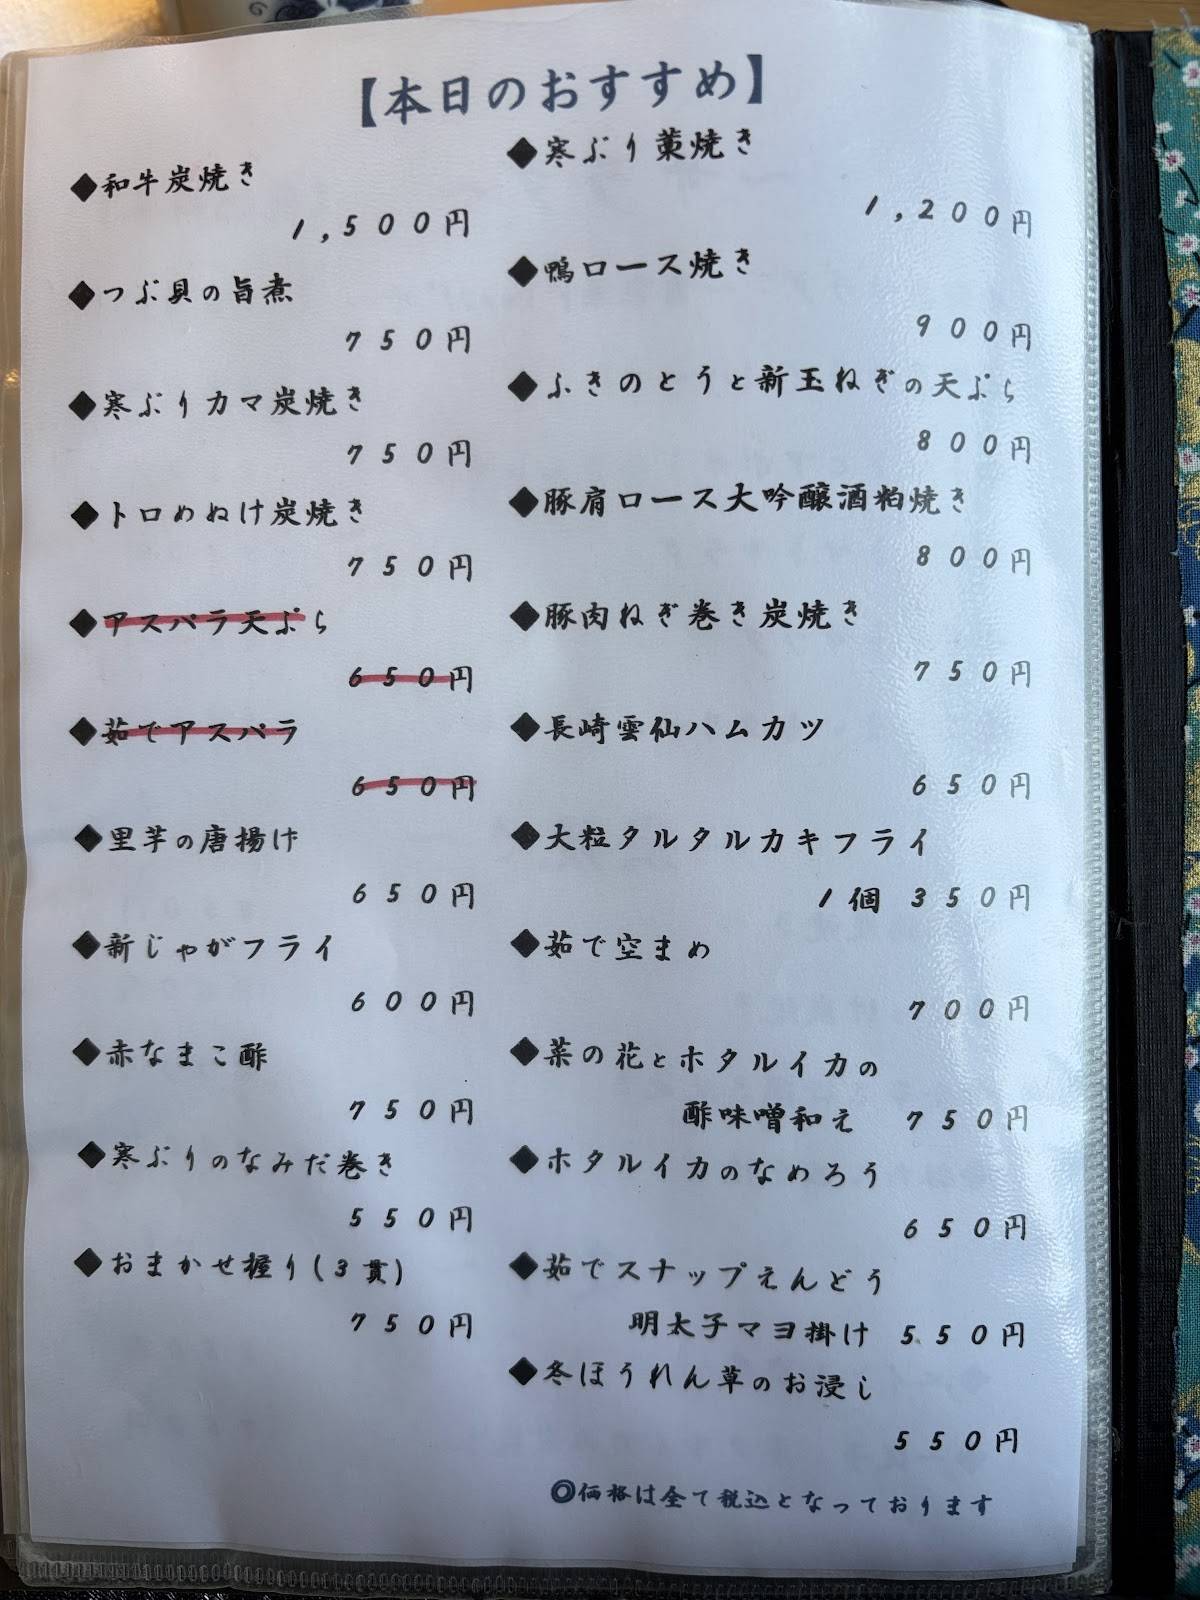 【本日のおすすめ】
◆和牛炭焼き
1,500円
◆つぶ貝の旨煮
750円
◆寒ぶりカマ炭焼き
750円
◆トロめぬけ炭焼き
750円
◆アスパラ天ぷら
650円
◆茹でアスパラ
650円
◆里芋の唐揚げ
650円
◆新じゃがフライ
600円
◆赤なまこ酢
750円
◆寒ぶりのなみだ巻き
550円
◆おまかせ握り(3貫)
750円
◆寒ぶり藁焼き
1,200円
◆鴨ロース焼き
900円
◆ふきのとうと新玉ねぎの天ぷら
800円
◆豚肩ロース大吟醸酒粕焼き
800円
◆豚肉ねぎ巻き炭焼き
750円
◆長崎雲仙ハムカツ
650円
◆大粒タルタルカキフライ
1個 350円
◆茹で空まめ
700円
◆菜の花とホタルイカの
酢味噌和え 750円
◆ホタルイカのなめろう
650円
◆茹でスナップえんどう
明太子マヨ掛け 550円
◆冬ほうれん草のお浸し
550円
◎価格は全て税込となっております